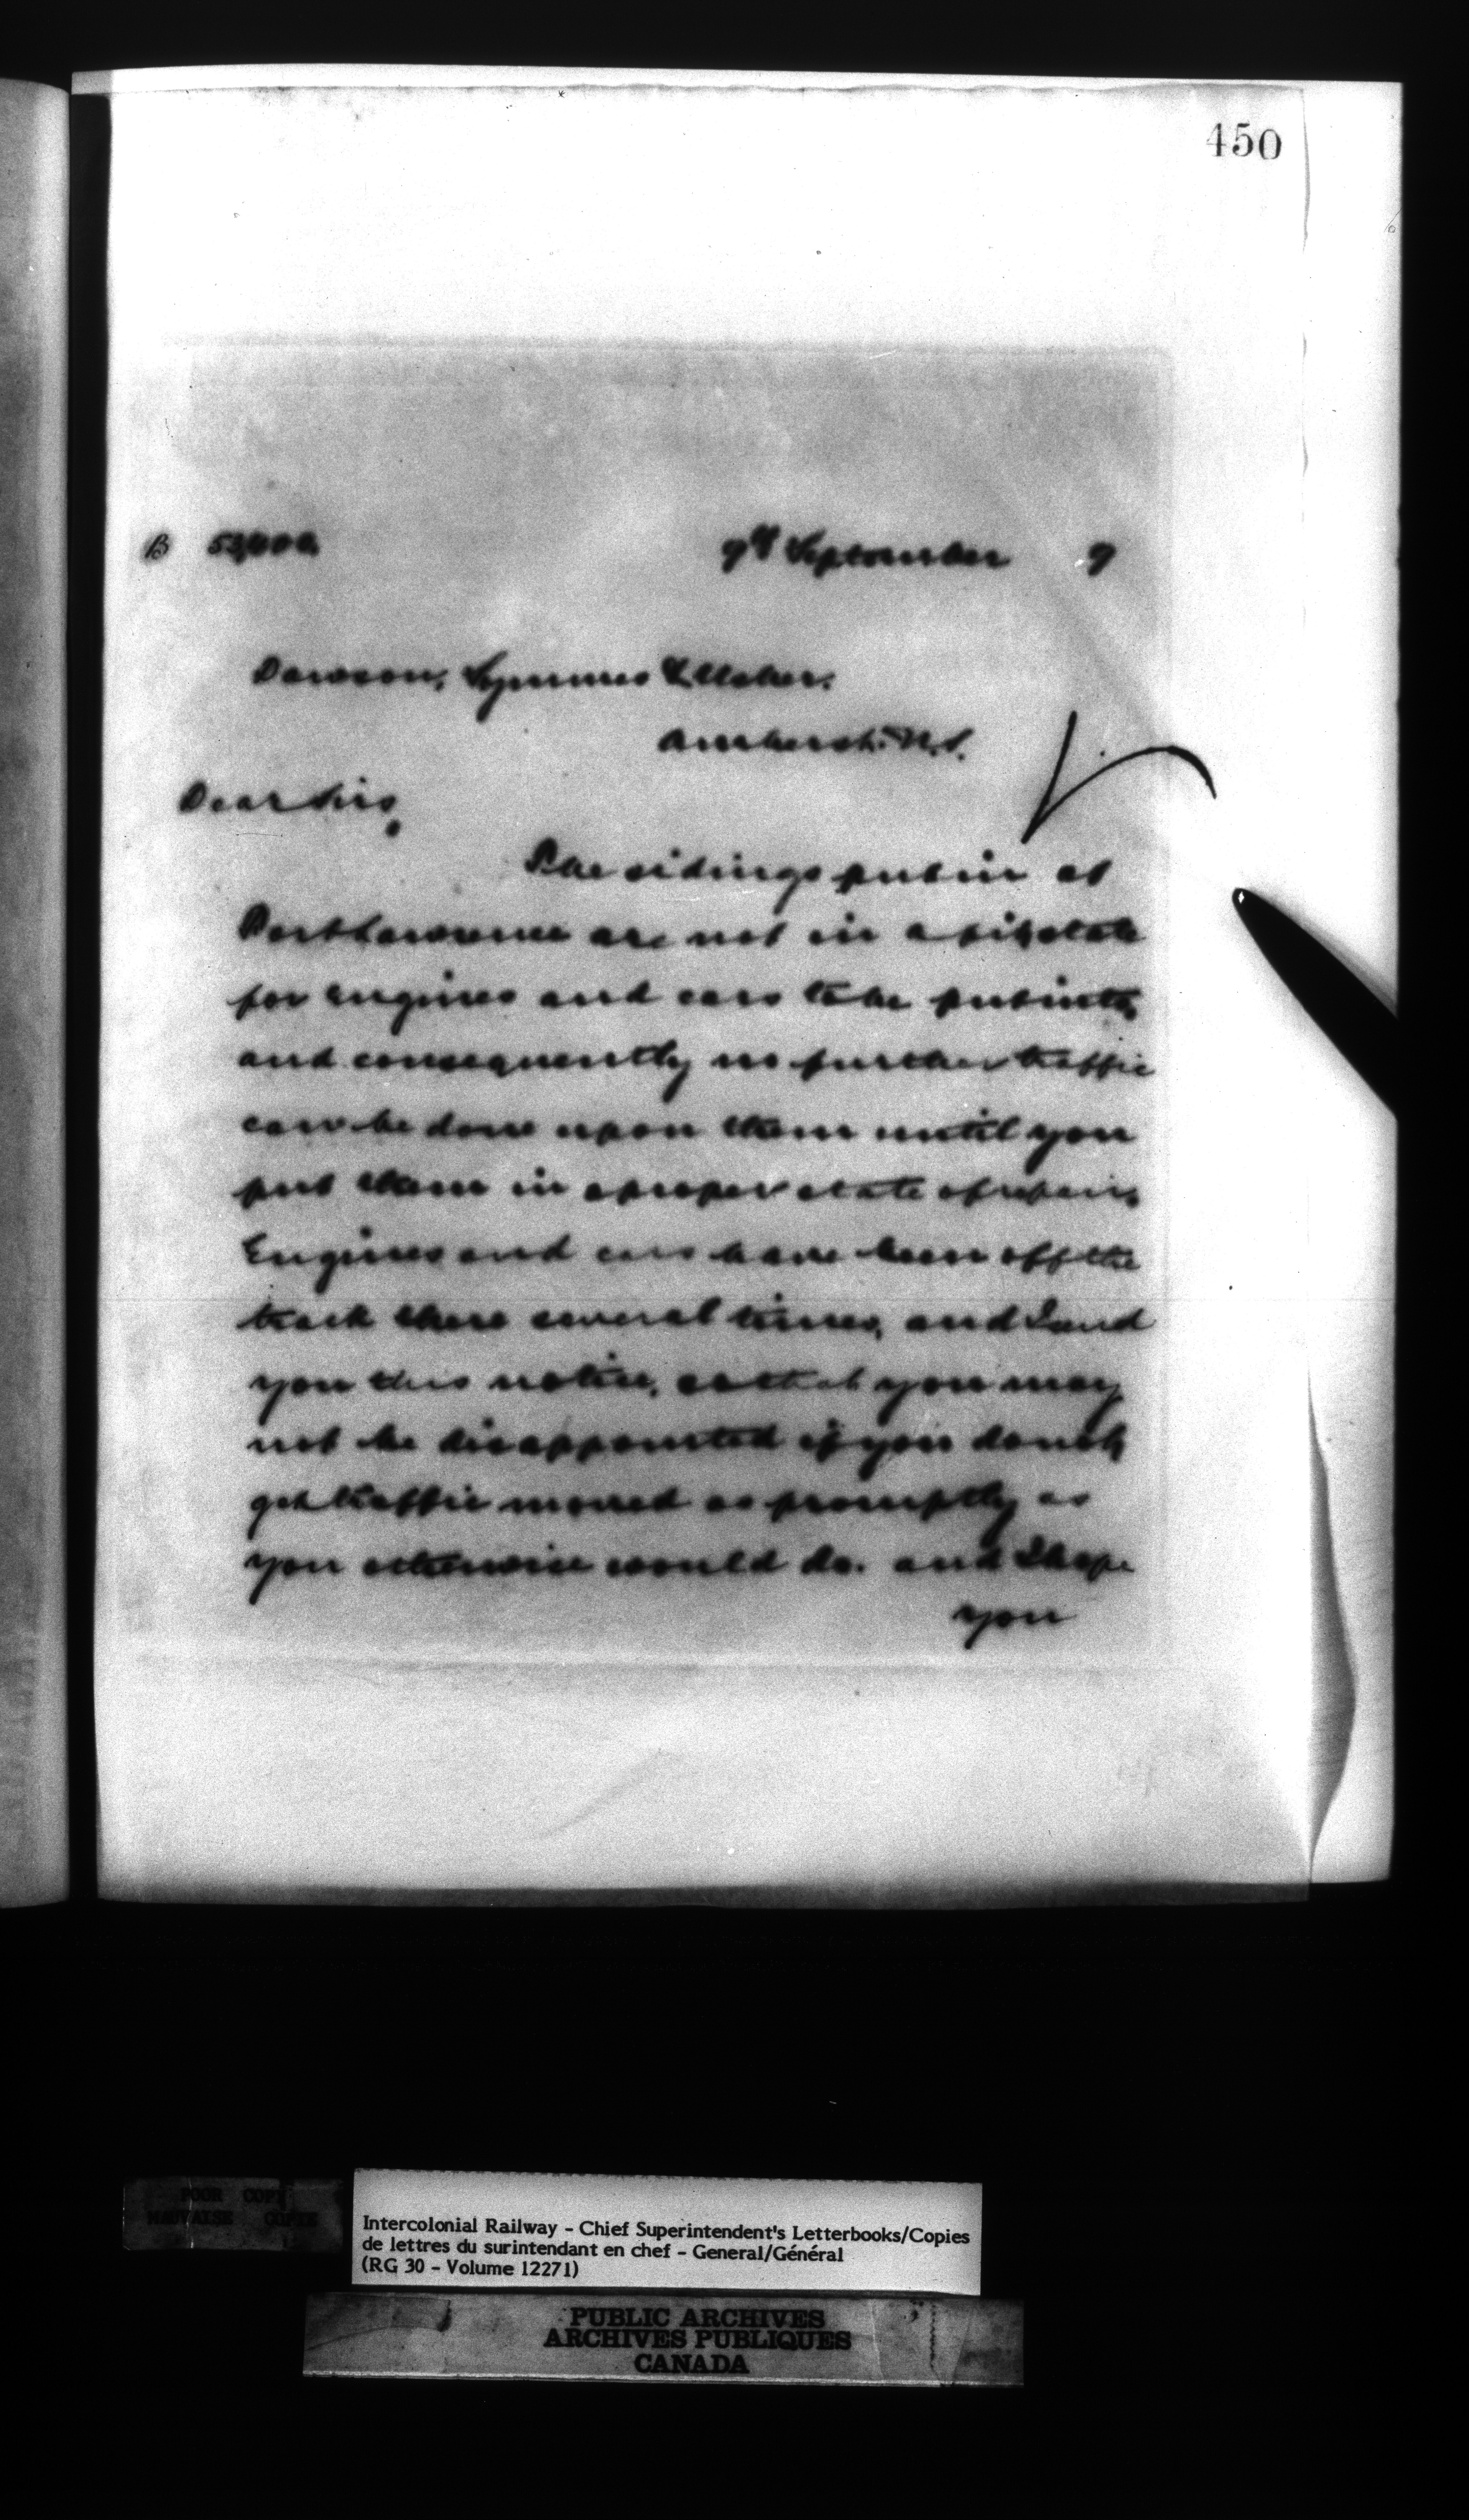 450
B 53,
9th September 9
Dawson, Symmes & Usher.
Amherst. N.S.
Dear Sirs,
The sidings put in at
Port Lawrence are not in a fit state
for Engines and cars to be put into,
and consequently no further traffic
can be done upon them until you
put them in a proper state of repair,
Engines and cars have been off the
track there several times, and I send
you this notice, so that you may
not be disappointed if you don't
get traffic moved as promptly as
you otherwise would do. and I hope
you
POOR COPY
MAUVAISE COPIE
Intercolonial Railway - Chief Superintendent's Letterbooks/Copies
de lettres du surintendant en chef - General/Général
(RG 30 - Volume 12271)
PUBLIC ARCHIVES
ARCHIVES PUBLIQUES
CANADA